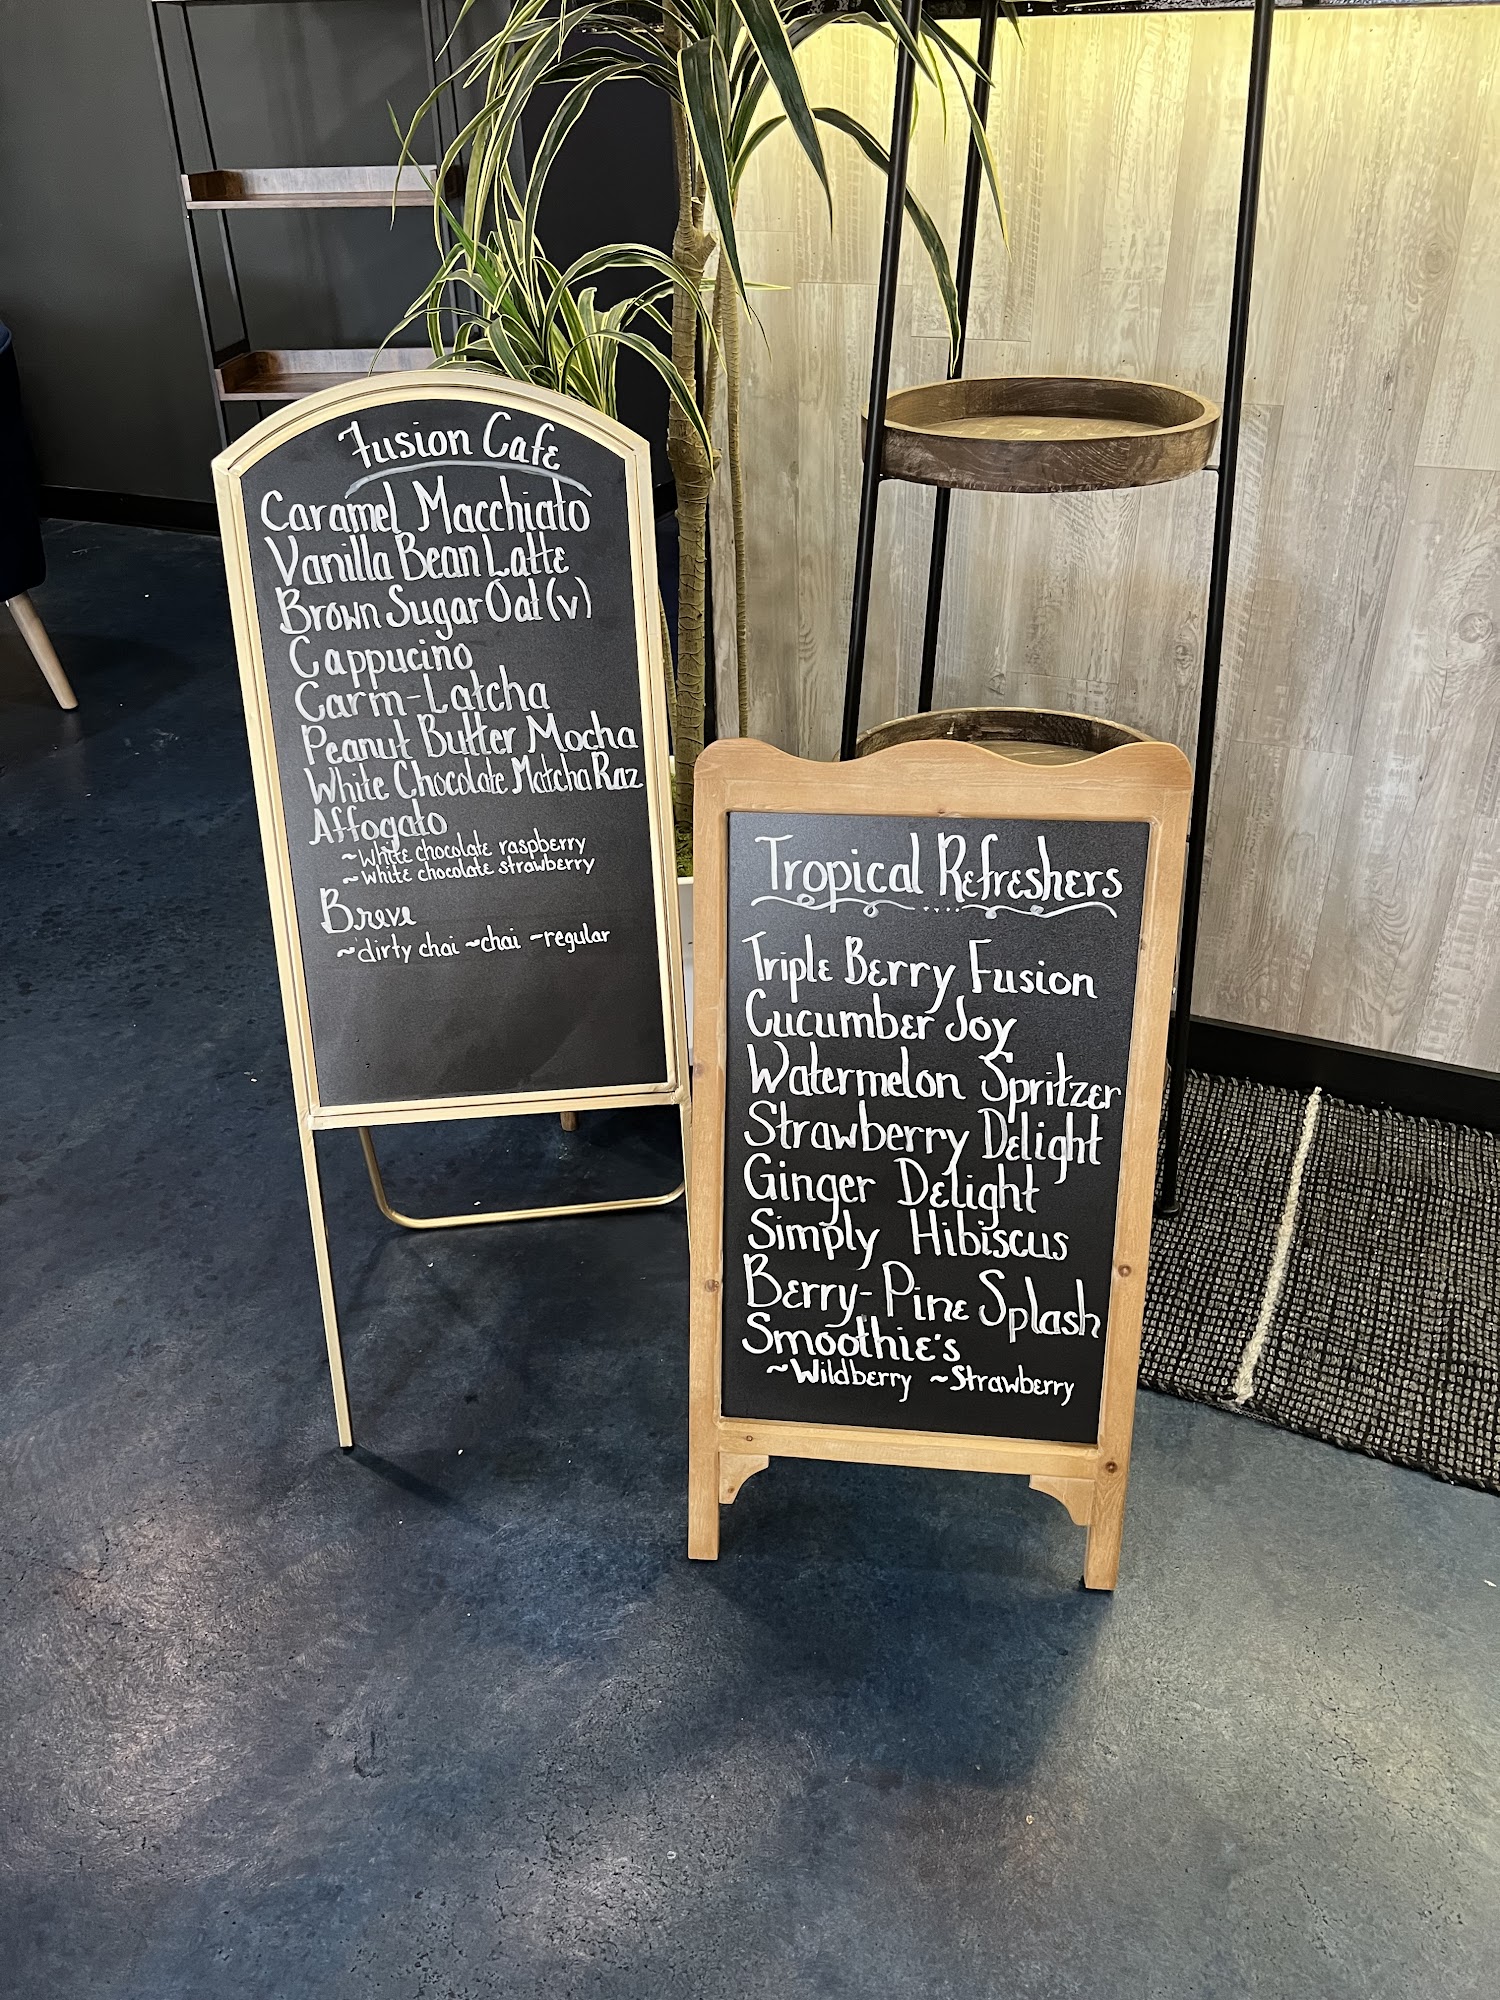 Fusion Cafe
Caramel Macchiato
Vanilla Bean Latte
Brown Sugar Oat (v)
Cappucino
Carm-Latcha
Peanut Butter Mocha
White Chocolate Matcha Raz
Affogato
~White chocolate raspberry
~White chocolate strawberry
Breve
~dirty chai ~chai ~regular
Tropical Refreshers
Triple Berry Fusion
Cucumber Joy
Watermelon Spritzer
Strawberry Delight
Ginger Delight
Simply Hibiscus
Berry-Pine Splash
Smoothie's
~Wildberry ~Strawberry